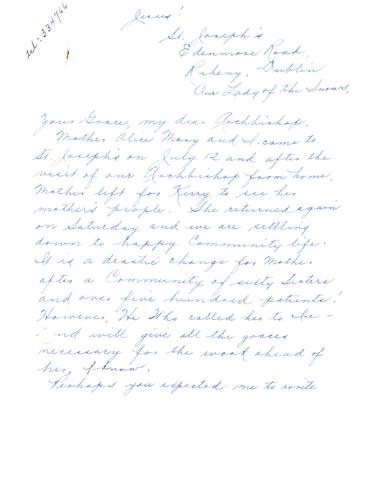 Jesus!
tel: 334766
St. Joseph's
Edenmore Road.
Raheny. Dublin
Our Lady of the Snows.
Your Grace, my dear Archbishop.
Mother Alice Mary and I came to
St. Joseph's on July 12 and after the
visit of our Archbishop from home.
Mother left for Kerry to see her
mother's people. She returned again
on Saturday and we are settling
down to happy Community life.
It is a drastic change for Mother
after a Community of sixty Sisters
and over five hundred patients!
However, He Who called her to Ire-
nd will give all the graces
necessary for the work ahead of
her, I know.
Perhaps you expected me to write